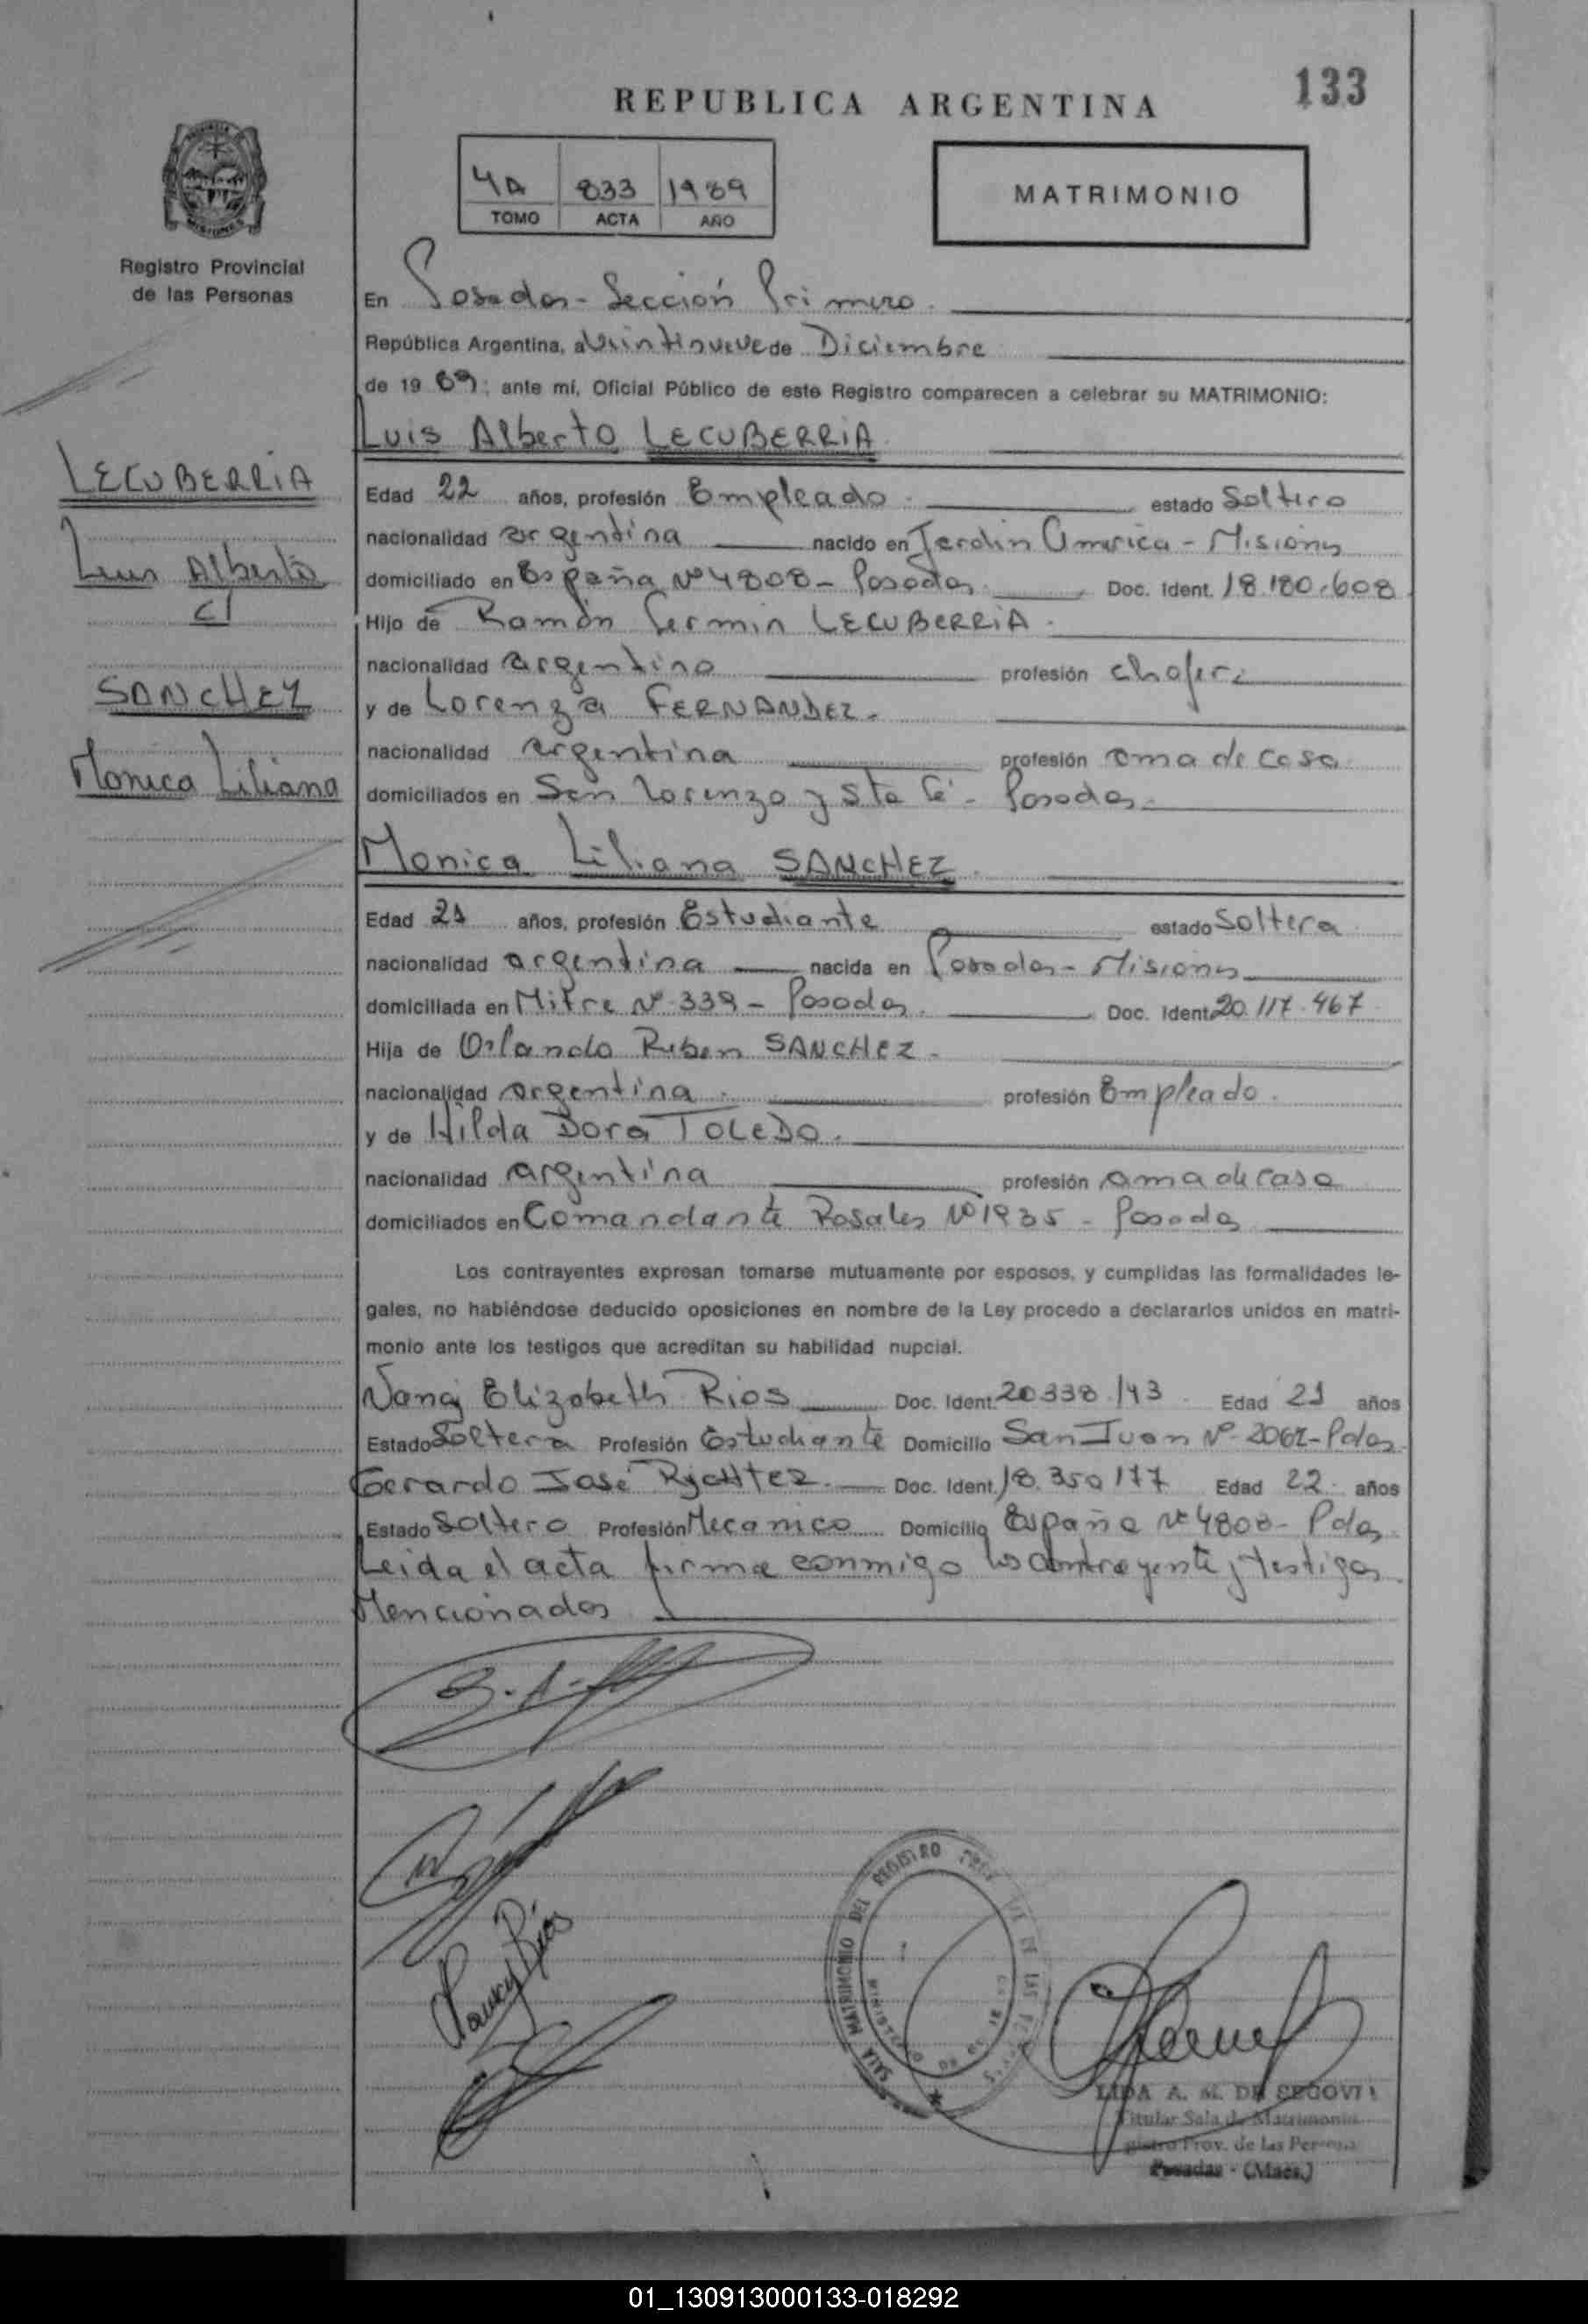 133
REPUBLICA ARGENTINA
4A 833 1989
TOMO ACTA AÑO
MATRIMONIO
PROVINCIA DE MISIONES
Registro Provincial
de las Personas
En Posadas - Sección Primera.
República Argentina, a Veintinueve de Diciembre
de 19 89; ante mí, Oficial Público de este Registro comparecen a celebrar su MATRIMONIO:
Luis Alberto LECUBERRIA
LECUBERRIA
Luis Alberto
c/
SANCHEZ
Monica Liliana
Edad 22 años, profesión Empleado. estado Soltero
nacionalidad argentina nacido en Jardin America - Misiones
domiciliado en España Nº 4808 - Posadas Doc. Ident. 18.180.608
Hijo de Ramón Fermin LECUBERRIA.
nacionalidad argentina profesión chofer
y de Lorenza FERNANDEZ.
nacionalidad argentina profesión ama de casa
domiciliados en San Lorenzo y Sta Fé - Posadas
Monica Liliana SANCHEZ.
Edad 21 años, profesión Estudiante estado Soltera
nacionalidad argentina nacida en Posadas - Misiones
domiciliada en Mitre Nº 339 - Posadas. Doc. Ident. 20.117.467
Hija de Orlando Ruben SANCHEZ.
nacionalidad argentina. profesión Empleado.
y de Hilda Dora TOLEDO.
nacionalidad argentina profesión ama de casa
domiciliados en Comandante Rosales Nº 1935 - Posadas
Los contrayentes expresan tomarse mutuamente por esposos, y cumplidas las formalidades le-
gales, no habiéndose deducido oposiciones en nombre de la Ley procedo a declararlos unidos en matri-
monio ante los testigos que acreditan su habilidad nupcial.
Nancy Elizabeth Rios Doc. Ident. 20338143 Edad 21 años
Estado Soltera Profesión Estudiante Domicilio San Juan Nº 2062 - Pdas.
Gerardo José Doc. Ident. 18.350177 Edad 22 años
Estado Soltero Profesión Mecanico Domicilio España Nº 4808 - Pdas
Leida el acta firma conmigo los contrayente y testigos
Mencionados
Nancy Rios
SALA MATRIMONIO DEL REGISTRO DE LAS
LIDA A. M. DE SEGOVIA
Titular Sala de Matrimonio
Prov. de las Personas
Posadas - (Mnes.)
01_130913000133-018292